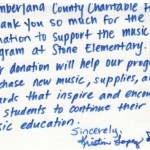 Cumberland County Charitable F
hank you so much for the
nation to support the music
ogram at Stone Elementary.
r donation will help our progr
chase new music, supplies, a
ards that inspire and encou
students to continue their
sic education.
Sincerely,
Kristin Lopez